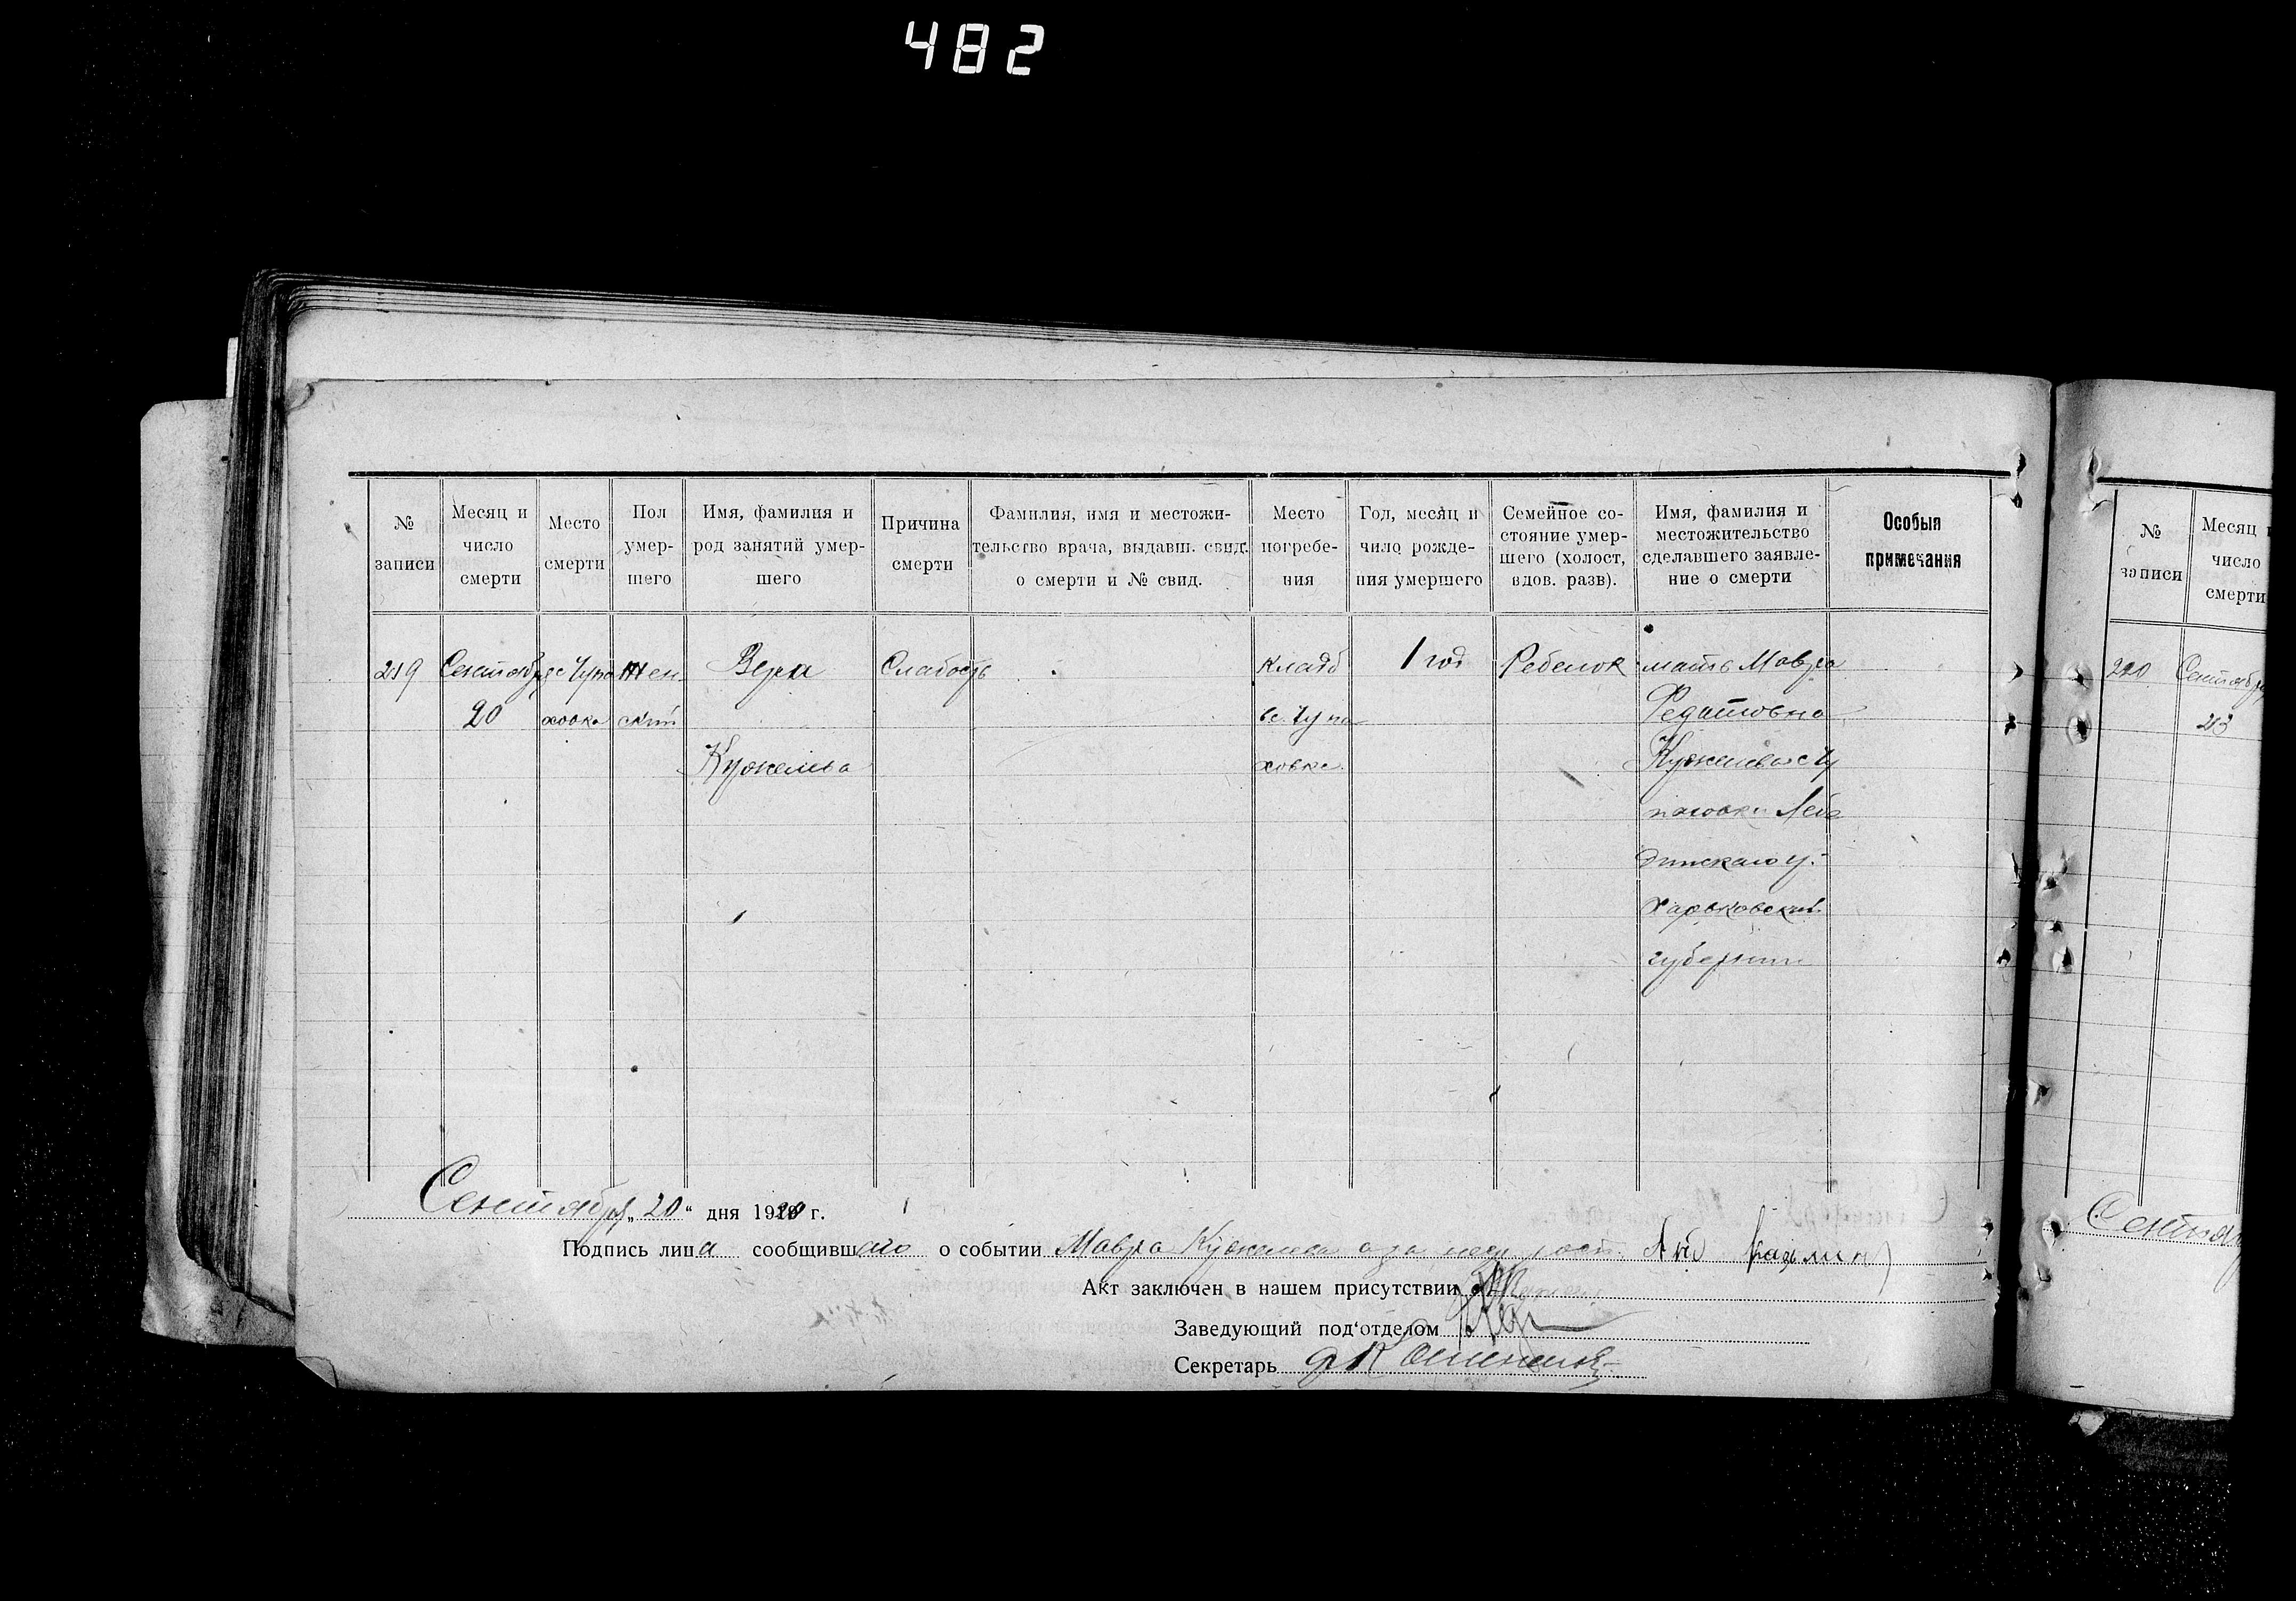 482
№ записи
Месяц и число смерти
Место смерти
Пол умер- шего
Имя, фамилия и род занятий умер- шего
Причина смерти
Фамилия, имя и местожи- тельство врача, выдавш. свид. о смерти и № свид.
Место погребе- ния
Год, месяц и число рожде- ния умершего
Семейное со- стояние умер- шего (холост, вдов. разв).
Имя, фамилия и местожительство сделавшего заявле- ние о смерти
Особыя примечания
219
Сентября
20
с Чупа
ховка
Жен
ский
Вера
Кужелева
Слабость
Кладб
вс. Чупа
ховке
1 год
Ребенок
мать Мавра
Федотовна
Кужелева с Чу
паховки Лебе
динскаго у.
Харьковской
губернии
Сентября „20" дня 1920 г.
Подпись лица сообщившаго о событии Мавра Кужелева а за негр
Акт заключен в нашем присутствии
Заведующий под'отделом
Секретарь
№ записи
Месяц и
число
смерти
220
Сентября
23
Сентя